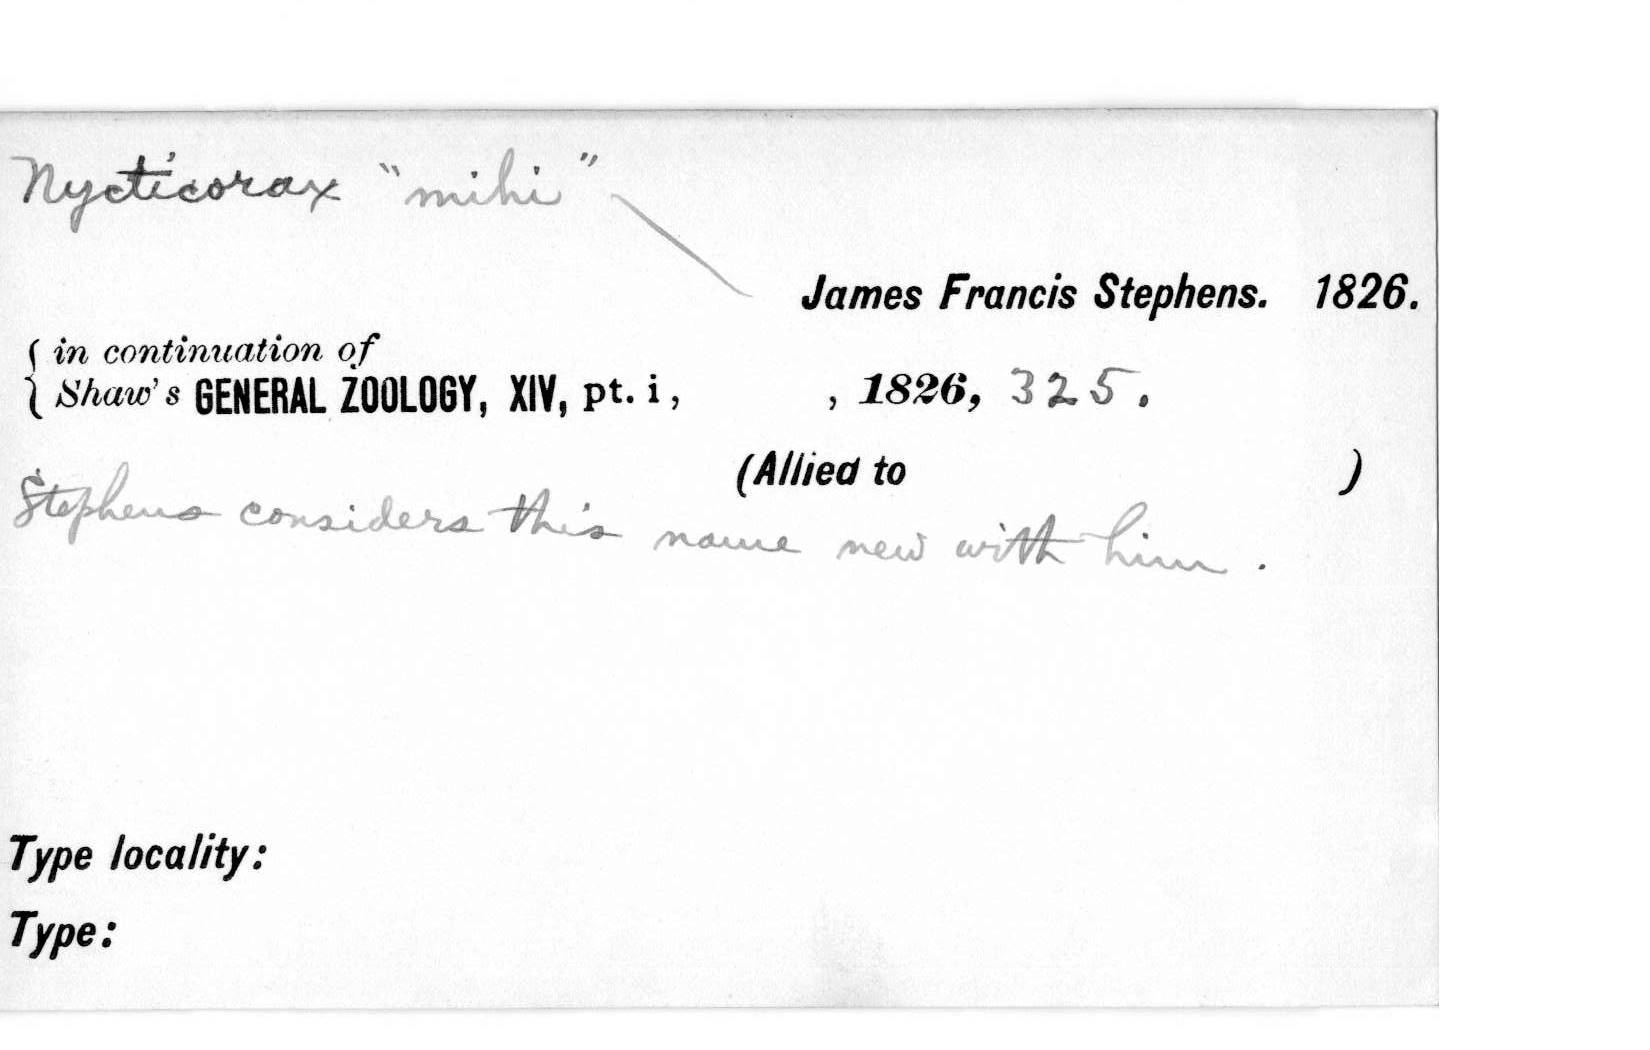 Nycticorax "mihi"
James Francis Stephens. 1826.
{ in continuation of
{ Shaw's GENERAL ZOOLOGY, XIV, pt. i, , 1826, 325.
(Allied to )
Stephens considers this name new with him.
Type locality:
Type: